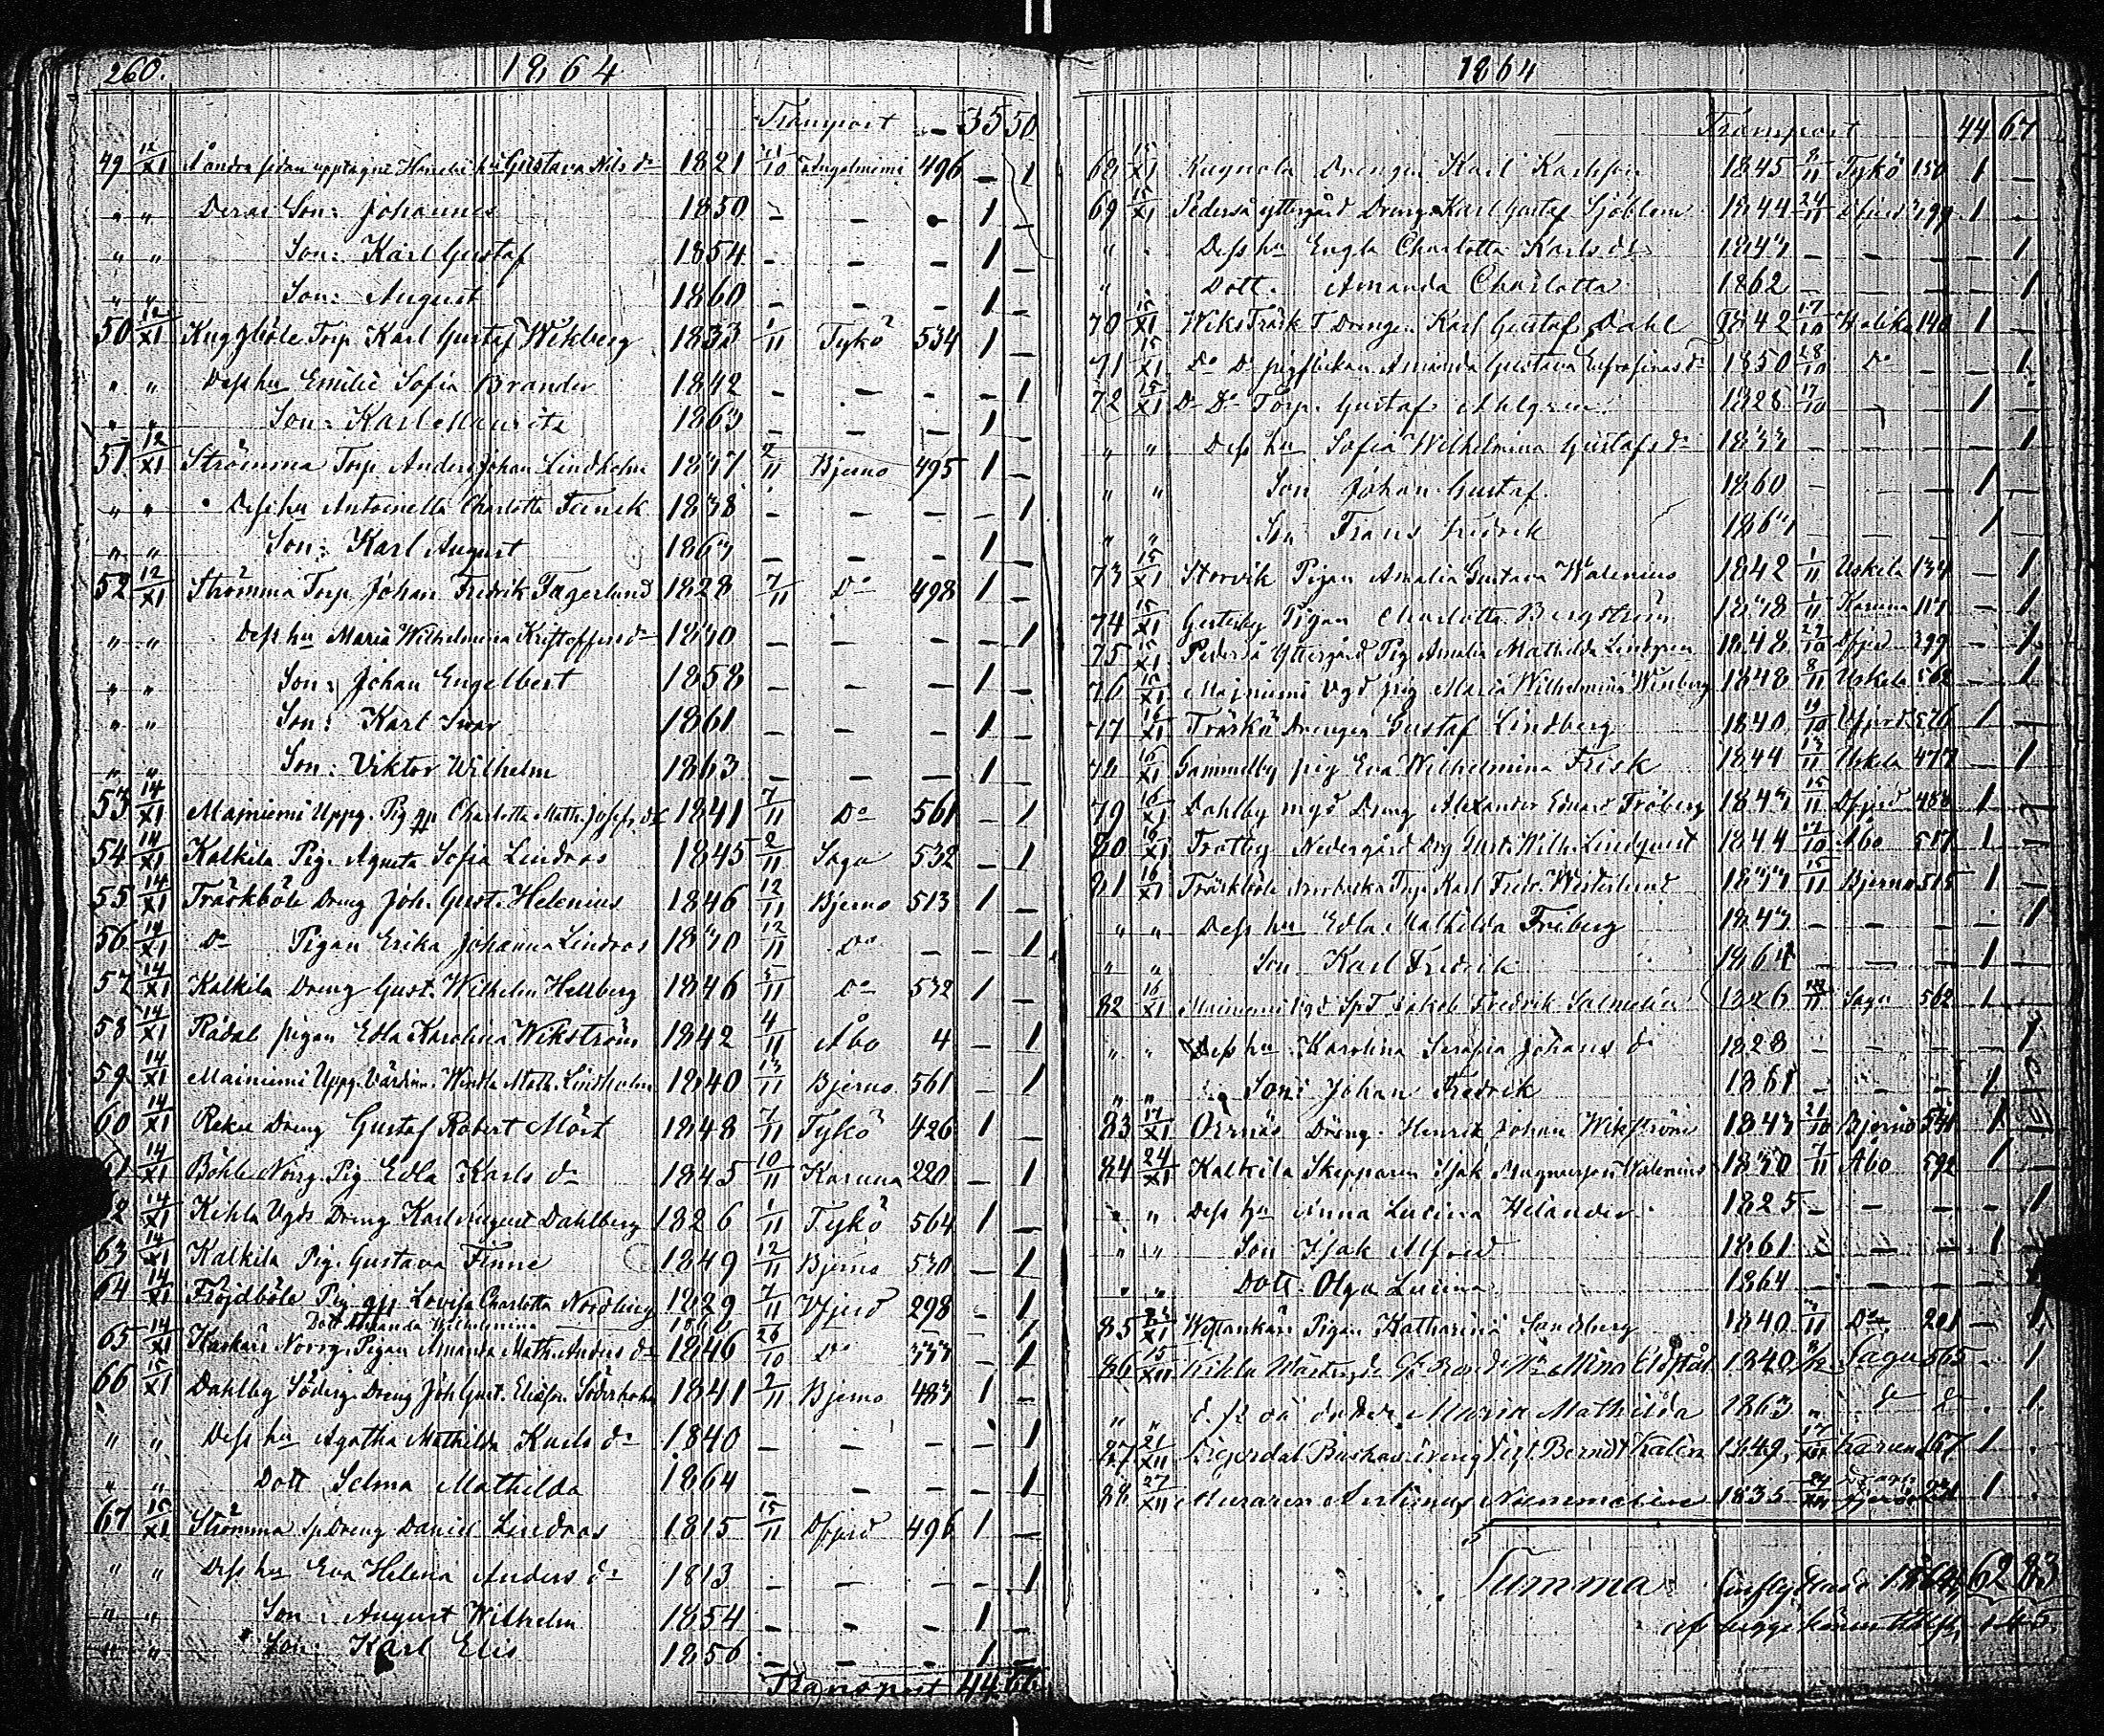 260. 1864
Transport — 35 50
49 12/XI Å andra sidan upptagne Hus hu Gustava Nils dr 1821 11/10 Angelniemi 496 — 1
" " Deras Son: Johannes 1850 — — 1 —
" " Son: Karl Gustaf 1854 — — — 1 —
" " Son: August 1860 — — — 1 —
50 12/XI Kuggböle Torp. Karl Gustaf Wikberg 1833 1/11 Tykö 534 1 —
" " Dess hu Emilie Sofia Brander 1842 — — — — 1
" " Son: Karl Mauritz 1863 — — — 1 —
51 12/XI Strömma Torp. Anders Johan Lindholm 1837 2/11 Bjerno 495 1 —
" " Dess hu Antoinetta Charlotta Funck 1838 — — — — 1
" " Son: Karl August 1863 — — — 1 —
52 12/XI Strömma Torp. Johan Fredrik Fagerlund 1828 7/11 Do 498 1 —
" " Dess hu Maria Wilhelmina Kristoffers dr 1830 — — — — 1
" " Son: Johan Engelbert 1858 — — — 1 —
" " Son: Karl Ivar 1861 — — — 1 —
" " Son: Viktor Wilhelm 1863 — — — 1 —
53 14/XI Mainiemi Uppg. Pig Charlotta Math. Josefs dr 1841 7/11 Do 561 — 1
54 14/XI Kalkila Pig. Agneta Sofia Lindroos 1845 2/11 Sagu 532 — 1
55 14/XI Träskböle Dreng Joh. Gust. Helenius 1846 12/11 Bjerno 513 1 —
56 14/XI Do Pigan Erika Johanna Lindros 1830 12/11 Do — — 1
57 14/XI Kalkila Dreng Gust. Wilhelm Hellberg 1846 5/11 Do 532 1 —
58 14/XI Rådal pigan Edla Karolina Wikström 1842 4/11 Åbo 4 — 1
59 14/XI Mainiemi Uppg. Wendla Math. Lindholm 1840 13/11 Bjerno 561 — 1
60 14/XI Reku Dreng Gustaf Robert Mört 1848 7/11 Tykö 426 1 —
14/XI Böhle Norrg. Pig Edla Karls dr 1845 10/11 Karuna 220 — 1
2 14/XI Kihla Ugds Dreng Karl August Dahlberg 1826 1/11 Tykö 564 1 —
63 14/XI Kalkila Pig. Gustava Finne 1849 12/11 Bjerno 530 — 1
64 14/XI Fröjdböle Pig Lovisa Charlotta Nordling 1829 7/11 Ofjerd 298 — 1
Dott Amanda Wilhelmina
65 14/XI Norrg. Pigan Amanda Math. Anders dr 1846 26/10 Do 333 — 1
66 15/XI Dahlby Söderg. Dreng Joh Gust. Eliasson Söderholm 1841 2/11 Bjerno 483 1 —
" " Dess hu Agatha Mathilda Karls dr 1840 — — — — 1
" " Dott Selma Mathilda 1864 — — — — 1
67 15/XI Strömma Dreng Daniel Lindroos 1815 15/11 Ofjerd 496 1 —
" " Dess hu Eva Helena Anders dr 1813 — — — — 1
" " Son: August Wilhelm 1854 — — — 1 —
" " Son: Karl Elis 1856 — — — 1 —
Transport 44 66
1864
Transport 44 67
68 15/XI Rugnola Drengen Karl Karlsson 1845 8/11 Tykö 150 1 —
69 15/XI Pederså yttergård Dreng Karl Gustaf Sjöblom 1844 24/11 Ofjerd 299 1 .
" " Dess hu Engla Charlotta Karls dr 1843 — — — — 1
" Dott. Amanda Charlotta 1862 — — — — 1
70 15/XI Wiks Träsk T Drenge. Karl Gustaf Dahl 1842 17/10 Halikko 140 1 —
71 15/XI Do Do pigflickan Amanda Gustava Eufrosinas dr 1850 28/10 Do — — 1
72 15/XI Do Do Torp. Gustaf Ahlgren 1828 17/10 1 —
" " Dess hu Sofia Wilhelmina Gustafs dr 1833 — — — — 1
" " Son Johan Gustaf 1860 — — — 1 —
" " Son Frans Fredrik 1863 — — — 1 —
73 15/XI Storvik Pigan Amalia Gustava Walenius 1842 1/11 Uskela 134 — 1
74 15/XI Gesterby Pigan Charlotta Bergström 1838 1/11 Karuna 117 — 1
75 15/XI Pederså Yttergård Pig Amalia Mathilda Lindgren 1848 29/10 Ofjerd 299 — 1
76 15/XI Mainiemi Ugd pig Maria Wilhelmina Winberg 1848 8/11 Uskela 562 — 1
77 16/XI Träskö Drengen Gustaf Lindberg 1840 19/10 Ofjerd 576 1 —
78 16/XI Gammelby pig Eva Wilhelmina Frisk 1844 13/11 Uskela 477 — 1
79 16/XI Dahlby Dreng Alexander Eduard Fröberg 1843 15/11 Ofjerd 488 1 —
80 16/XI Trotby Nedergård Drg Gust. Wilh. Lindqvist 1844 17/10 Åbo 517 1 —
81 16/XI Träskböle Torp Karl Fredr. Westerlund 1833 15/11 Bjerno 515 1 —
" " Dess hu Edla Mathilda Friberg 1843 — — — — 1
" " Son Karl Fredrik 1864 — — — 1 —
82 16/XI Mainiemi Ugd Jakob Fredrik Salmelin 1826 Sagu 562 1 —
" " Dess hu Karolina Serafia Johans dr 1823 — — — — 1
" " Son Johan Fredrik 1861 — — — 1
83 17/XI Oernäs Dreng. Henrik Johan Wikström 1843 21/10 Bjerno 541 1
84 24/XI Kalkila Skepparen Isak Magnusson Walenius 1830 7/11 Åbo 592 1 —
" " Dess hu Anna Lucina Helander 1825 — — — — 1
" " Son Isak Alfred 1861 — — — 1 —
" " Dott. Olga Lucina 1864 — — — — 1
85 Pigan Katharina Sandberg 1840 Do 201 — 1
86 15/XII Kihla Nina 1840 Sagu 565 . 1
" " Maria Mathilda 1863 " do do . 1
87 21/XII dreng Vigt Berndt Kalin 1849 17/XII Karuna 167 1 .
88 27/XII Muraren 1835 24/XII 231 1 .
Summa 1864, 62 83
af begge könen 145.